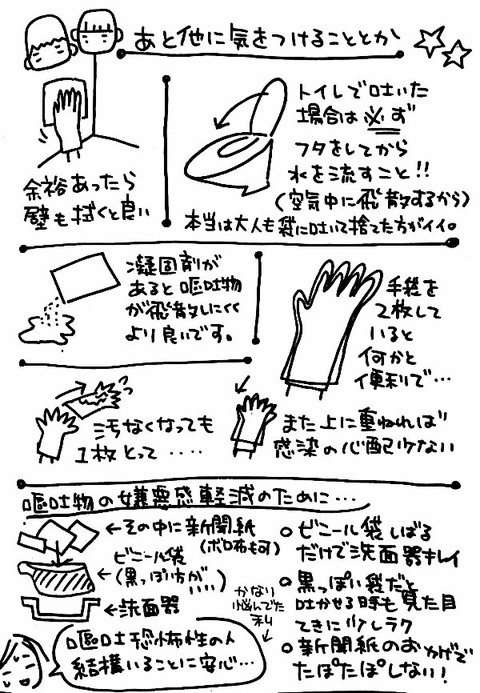 あと他に気をつけることとか
余裕あったら
壁も拭くと良い
トイレで吐いた
場合は必ず
フタをしてから
水を流すこと!!
(空気中に飛散するから)
本当は大人も袋に吐いて捨てた方がイイ。
凝固剤が
あると嘔吐物
が飛散しにくく
より良いです。
手袋を
2枚して
いると
何かと
便利で…
汚なくなっても
1枚とって‥‥
また上に重ねれば
感染の心配少ない
嘔吐物の嫌悪感軽減のために…
←その中に新聞紙
(ボロ布も可)
ビニール袋
←(黒っぽい方が‥‥)
←洗面器
ビニール袋しばる
だけで洗面器キレイ
黒っぽい袋だと
吐かせる時も見た目
てきに少しラク
新聞紙のおかげで
たぽたぽしない!
かない
悩んでた
私
嘔吐恐怖性の人
結構いることに安心…